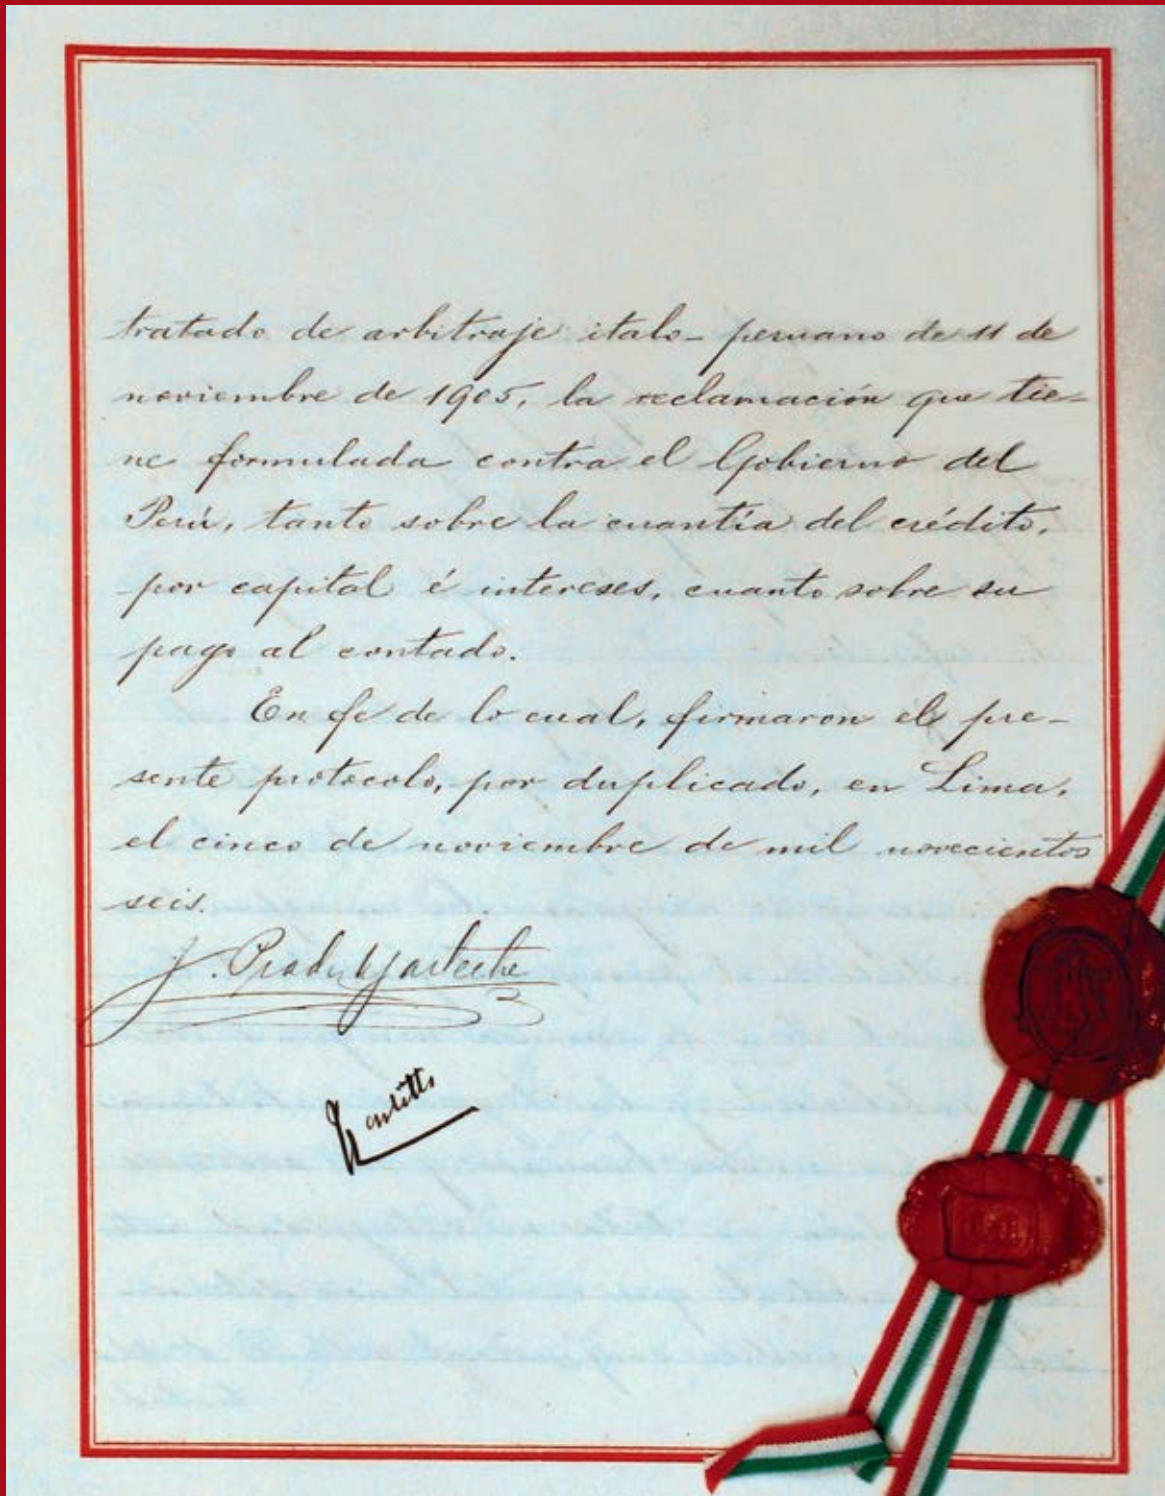 tratado de arbitraje italo-peruano de 11 de
noviembre de 1905, la reclamación que tie-
ne formulada contra el Gobierno del
Perú, tanto sobre la cuantía del crédito,
por capital é intereses, cuanto sobre su
pago al contado.
En fe de lo cual, firmaron el pre-
sente protocolo, por duplicado, en Lima,
el cinco de noviembre de mil novecientos
seis.
J. Prado y Ugarteche